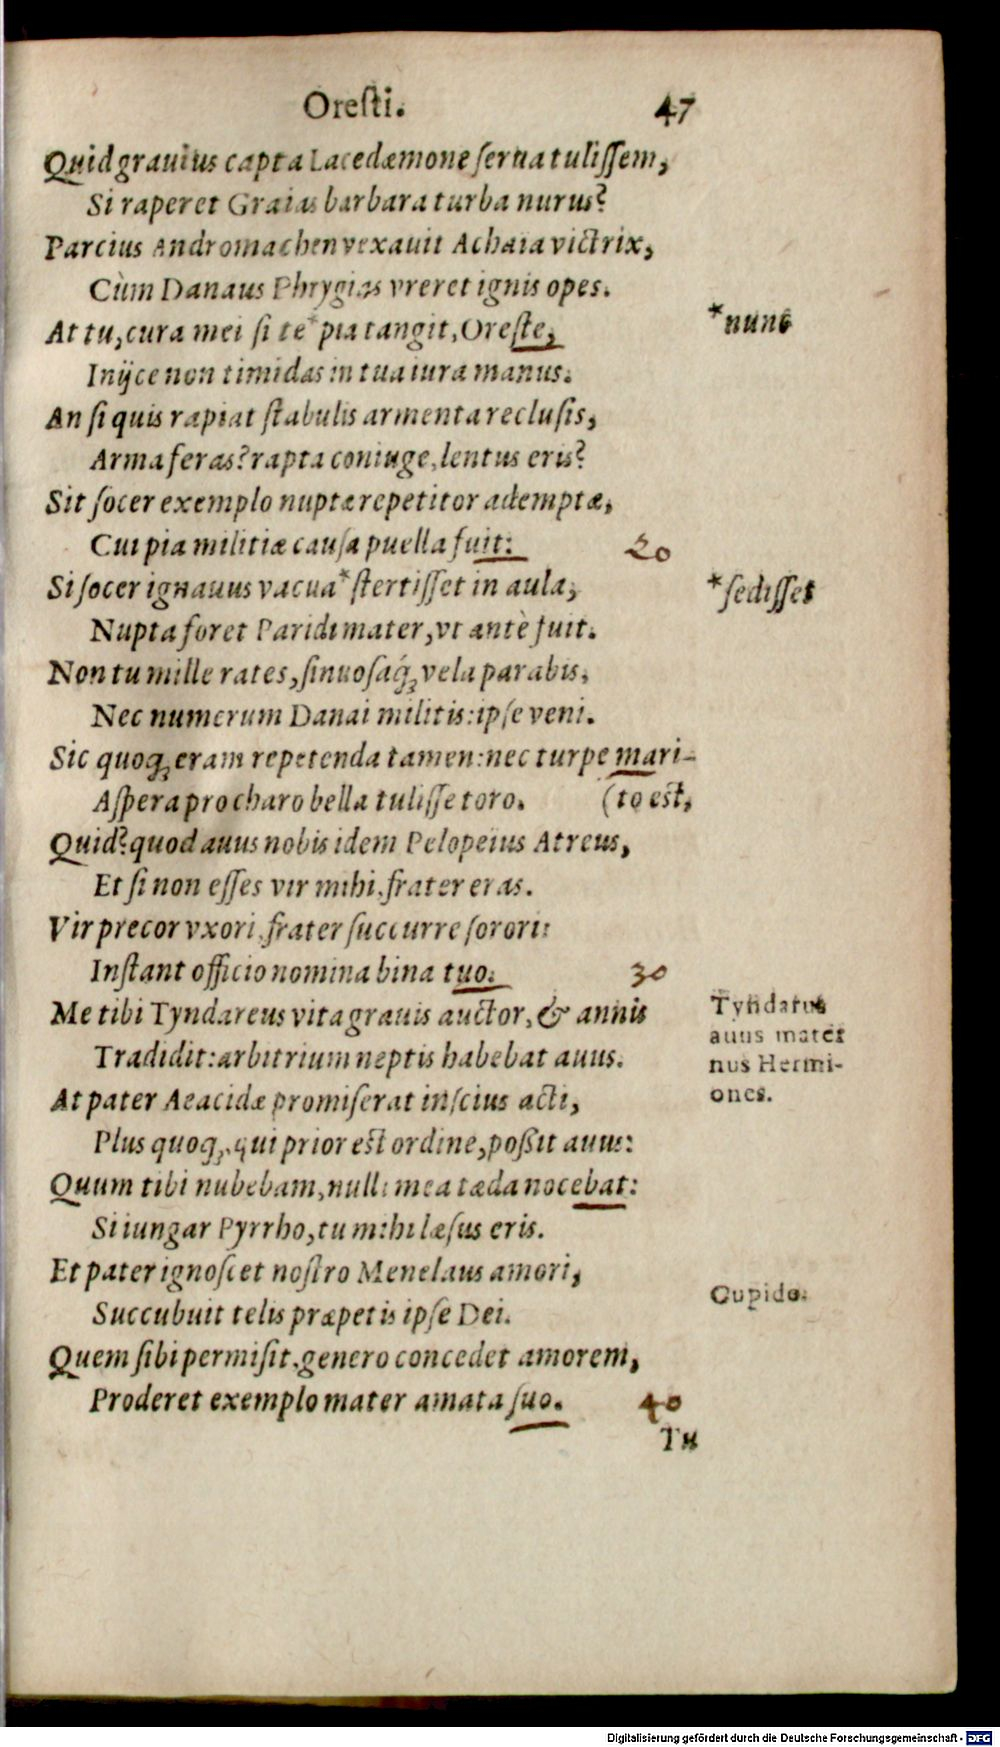 Oresti. 47
Quid grauius capta Lacedæmone serua tulissem,
Si raperet Graias barbara turba nurus?
Parcius Andromachen vexauit Achaia victrix,
Cùm Danaus Phrygias vreret ignis opes.
At tu, cura mei si te * pia tangit, Oreste,
*nunc
Inijce non timidas in tua iura manus.
An si quis rapiat stabulis armenta reclusis,
Arma feras? rapta coniuge, lentus eris?
Sit socer exemplo nuptæ repetitor ademptæ,
Cui pia militiæ causa puella fuit: 20
Si socer ignauus vacua * stertisset in aula,
*sedisset
Nupta foret Paridi mater, vt antè fuit.
Non tu mille rates, sinuosaq́; vela parabis,
Nec numerum Danai militis: ipse veni.
Sic quoq; eram repetenda tamen: nec turpe mari-
Aspera pro charo bella tulisse toro. (to est,
Quid? quod auus nobis idem Pelopeius Atreus,
Et si non esses vir mihi, frater eras.
Vir precor vxori, frater succurre sorori:
Instant officio nomina bina tuo. 30
Me tibi Tyndareus vita grauis auctor, & annis
Tradidit: arbitrium neptis habebat auus.
Tyndarus
auus mater
nus Hermi-
ones.
At pater Aeacidæ promiserat inscius acti,
Plus quoq;, qui prior est ordine, possit auus:
Quum tibi nubebam, nulli mea tæda nocebat:
Si iungar Pyrrho, tu mihi læsus eris.
Et pater ignoscet nostro Menelaus amori,
Succubuit telis præpetis ipse Dei.
Cupido.
Quem sibi permisit, genero concedet amorem,
Proderet exemplo mater amata suo. 40
Tu
Digitalisierung gefördert durch die Deutsche Forschungsgemeinschaft - DFG